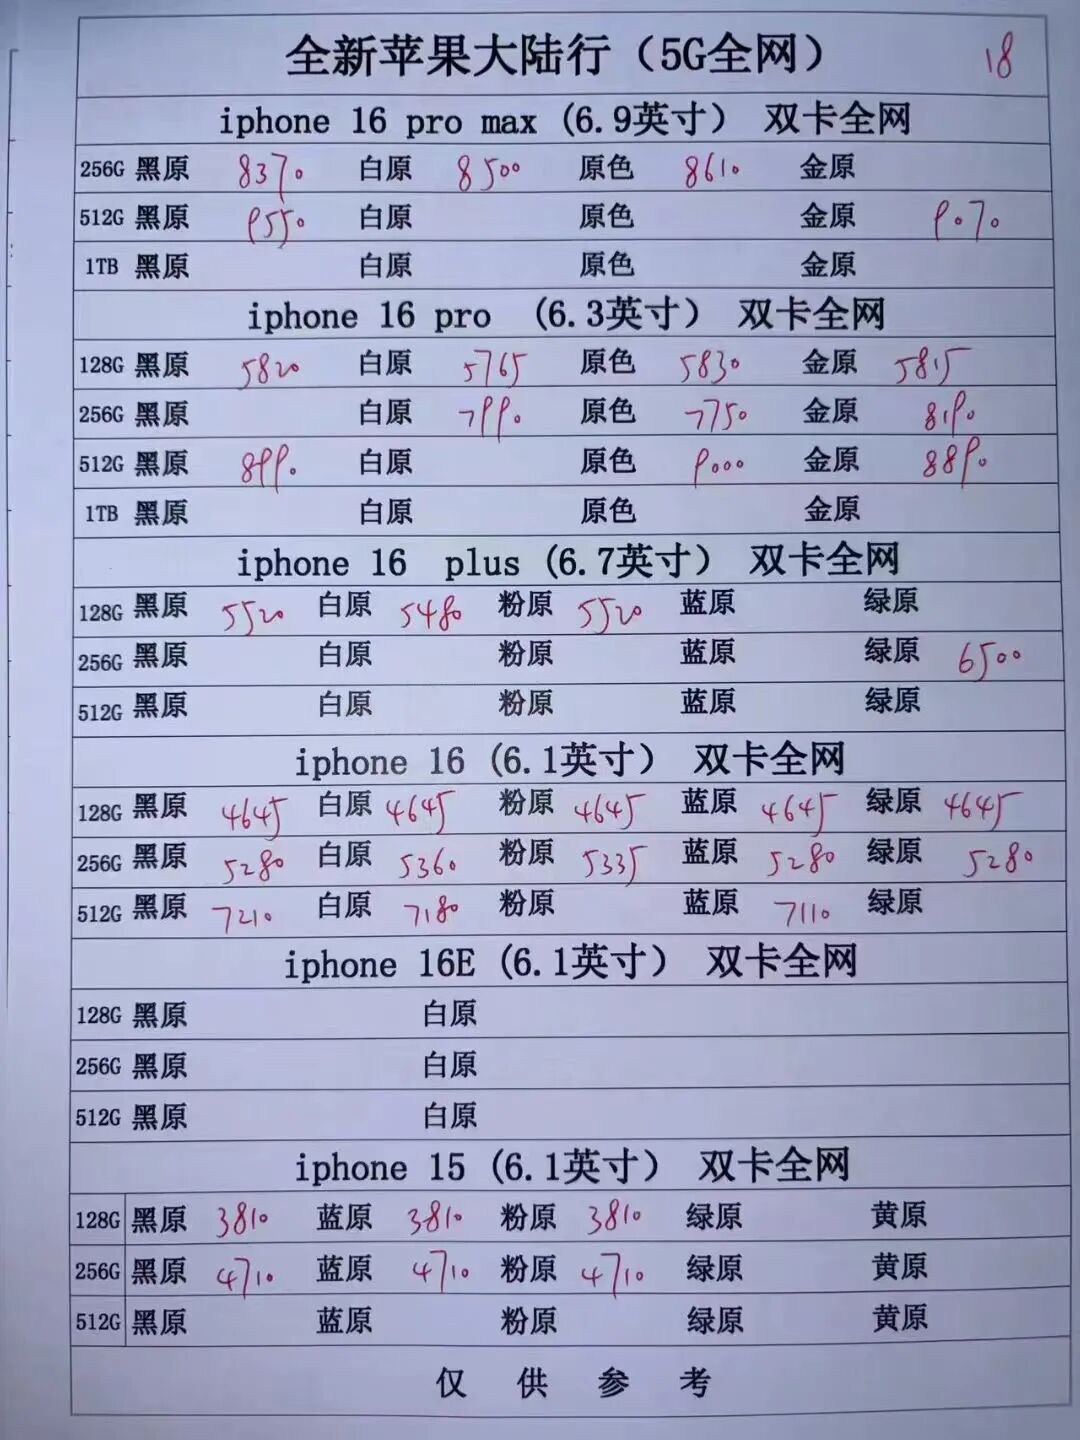 全新苹果大陆行（5G全网） 18
iphone 16 pro max (6.9英寸） 双卡全网
256G 黑原 8370 白原 8500 原色 8610 金原
512G 黑原 9550 白原 原色 金原 9070
1TB 黑原 白原 原色 金原
iphone 16 pro (6.3英寸） 双卡全网
128G 黑原 5820 白原 5765 原色 5830 金原 5815
256G 黑原 白原 7990 原色 7750 金原 8190
512G 黑原 8990 白原 原色 9000 金原 8890
1TB 黑原 白原 原色 金原
iphone 16 plus (6.7英寸） 双卡全网
128G 黑原 5520 白原 5480 粉原 5520 蓝原 绿原
256G 黑原 白原 粉原 蓝原 绿原 6500
512G 黑原 白原 粉原 蓝原 绿原
iphone 16 (6.1英寸） 双卡全网
128G 黑原 4645 白原 4645 粉原 4645 蓝原 4645 绿原 4645
256G 黑原 5280 白原 5360 粉原 5335 蓝原 5280 绿原 5280
512G 黑原 7210 白原 7180 粉原 蓝原 7110 绿原
iphone 16E (6.1英寸） 双卡全网
128G 黑原 白原
256G 黑原 白原
512G 黑原 白原
iphone 15 (6.1英寸） 双卡全网
128G 黑原 3810 蓝原 3810 粉原 3810 绿原 黄原
256G 黑原 4710 蓝原 4710 粉原 4710 绿原 黄原
512G 黑原 蓝原 粉原 绿原 黄原
仅供参考